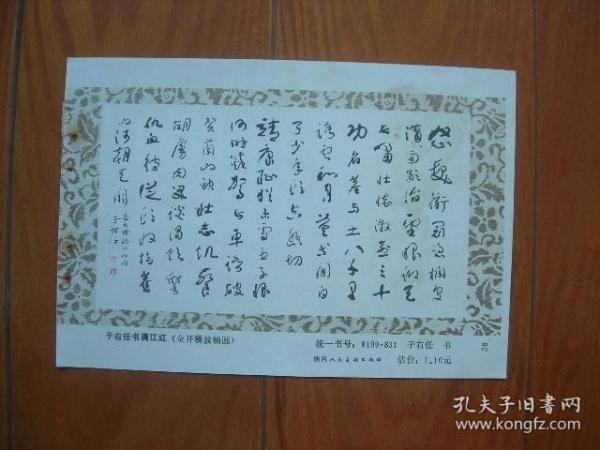 怒髮衝冠憑欄處
瀟雨歇抬望眼仰天
長嘯壯懷激烈三十
功名塵与土八千里
路雲和月莫等閒白
了少年頭空悲切
靖康恥猶未雪臣子恨
何時滅駕長車踏破
賀蘭山缺壯志飢餐
胡虜肉笑談渴飲匈
奴血待從頭收拾舊
山河朝天闕
于右任
于右任书满江红（全开横披轴画）
统一书号：8199·831 于右任 书
陕西人民美术出版社 估价：1.10元
28
孔夫子旧书网
www.kongfz.com